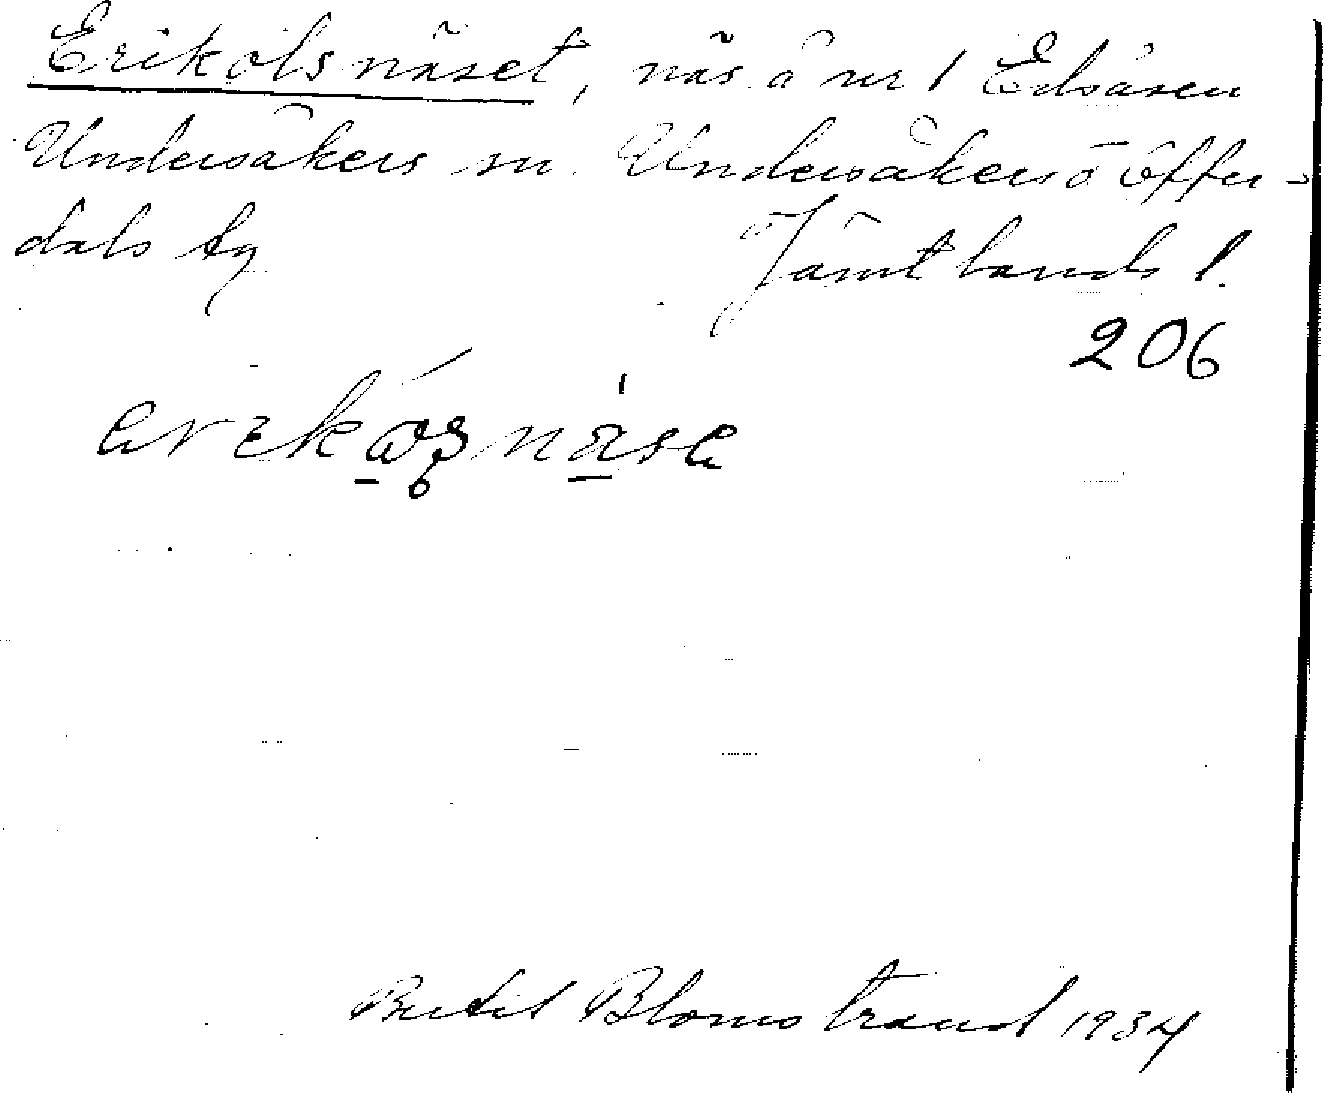 Erikolsnäset, näs å nr 1 Edsåsen
Undersåkers sn. Undersåkers o Offer-
dals tg Jämtlands l.
206
Bertil Blomstrand 1934